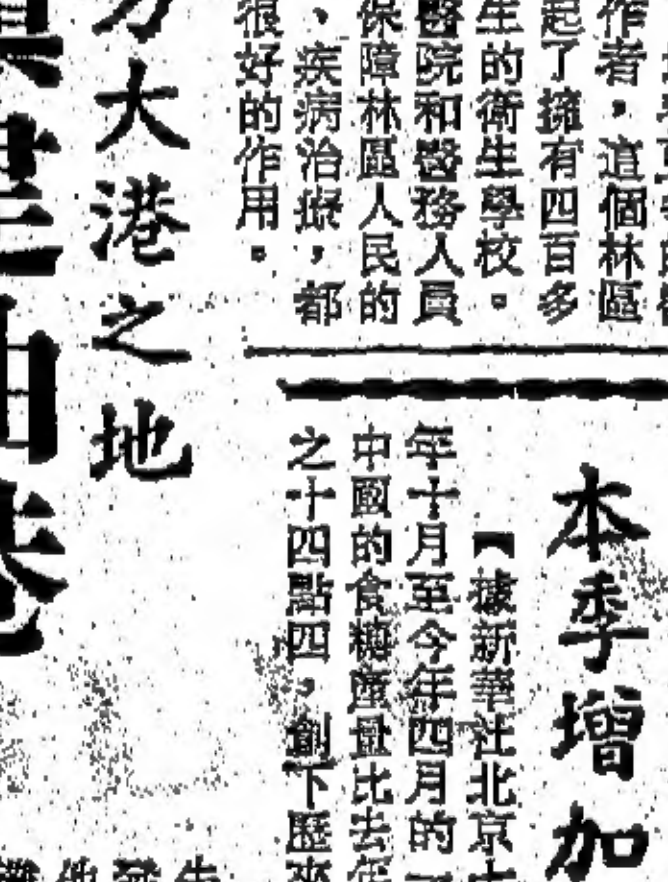 作者，這個林區
起了擁有四百多
生的衛生學校。
醫院和醫務人員
保障林區人民的
、疾病治療，都
很好的作用。
本季增加
【據新華社北京
年十月至今年四月的
中國的食糖產量比去年
之十四點四，創下歷來
大港之地